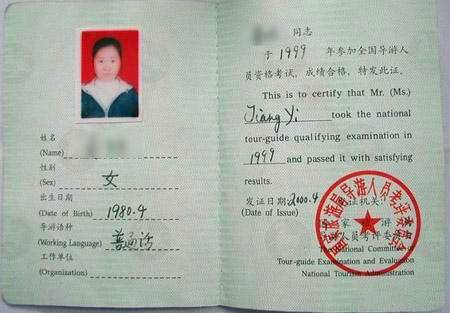 姓名
(Name)
性别
(Sex) 女
出生日期
(Date of Birth) 1980.4
导游语种
(Working Language) 普通话
工作单位
(Organization)
同志
于 1999 年参加全国导游人
员资格考试，成绩合格，特发此证。
This is to certify that Mr. (Ms.)
Jiang Yi took the national
tour-guide qualifying examination in
1999 and passed it with satisfying
results.
发证日期: 2000.4 发证机关:
(Date of Issue) 国家旅游局
导游人员考评委员会
The National Committee of
Tour-guide Examination and Evaluation
National Tourism Administration